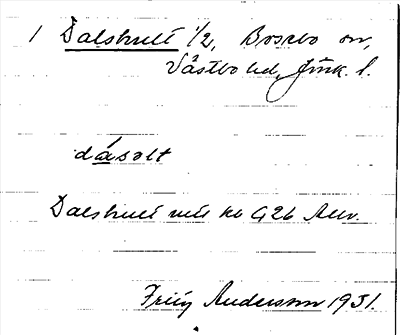 1 Dalshult 1/2, Bosebo sn,
Västbo hd, Jönk. l.
dásolt
Dalshult
Fritz Anderson 1931.